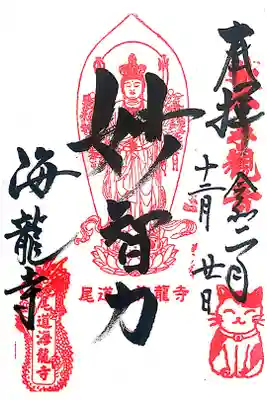 奉拝 令和二年
十二月 廿日
妙智力
海龍寺
尾道 龍寺
尾道海龍寺